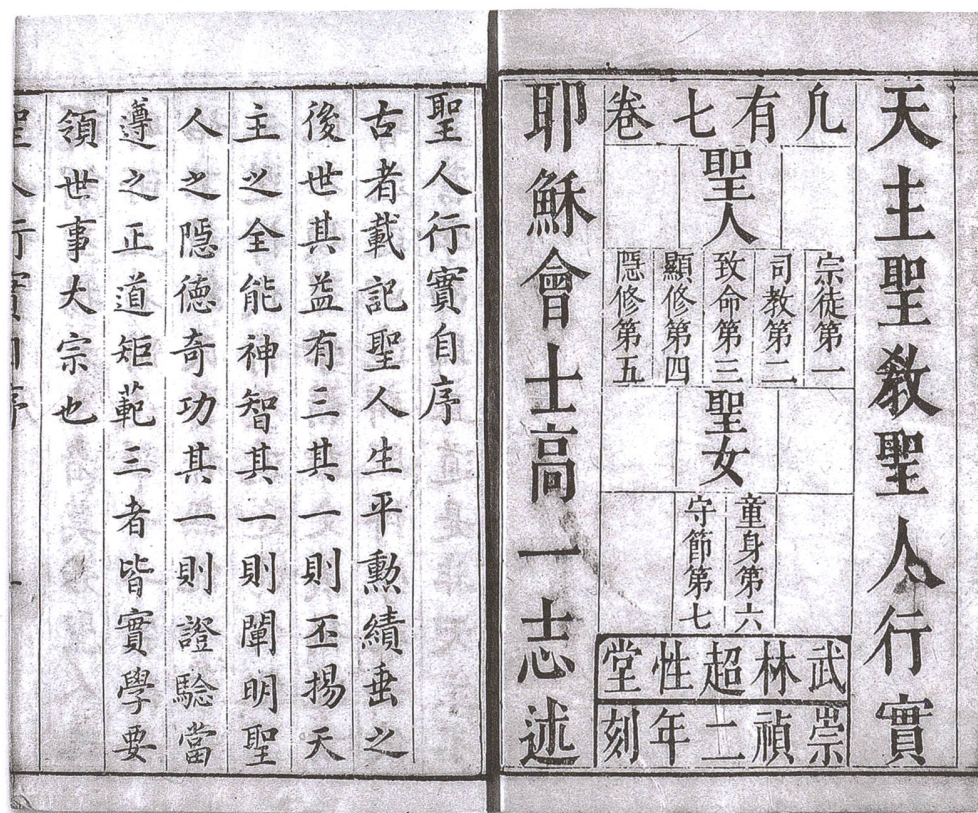 天主聖教聖人行實
凢有七卷
聖人
宗徒第一
司教第二
致命第三
顯修第四
隱修第五
聖女
童身第六
守節第七
武林超性堂
崇禎二年刻
耶穌會士高一志述
聖人行實自序
古者載記聖人生平勳績垂之
後世其益有三其一則丕揚天
主之全能神智其一則闡明聖
人之隱德奇功其一則證驗當
遵之正道矩範三者皆實學要
領世事大宗也
聖人行實自序 一